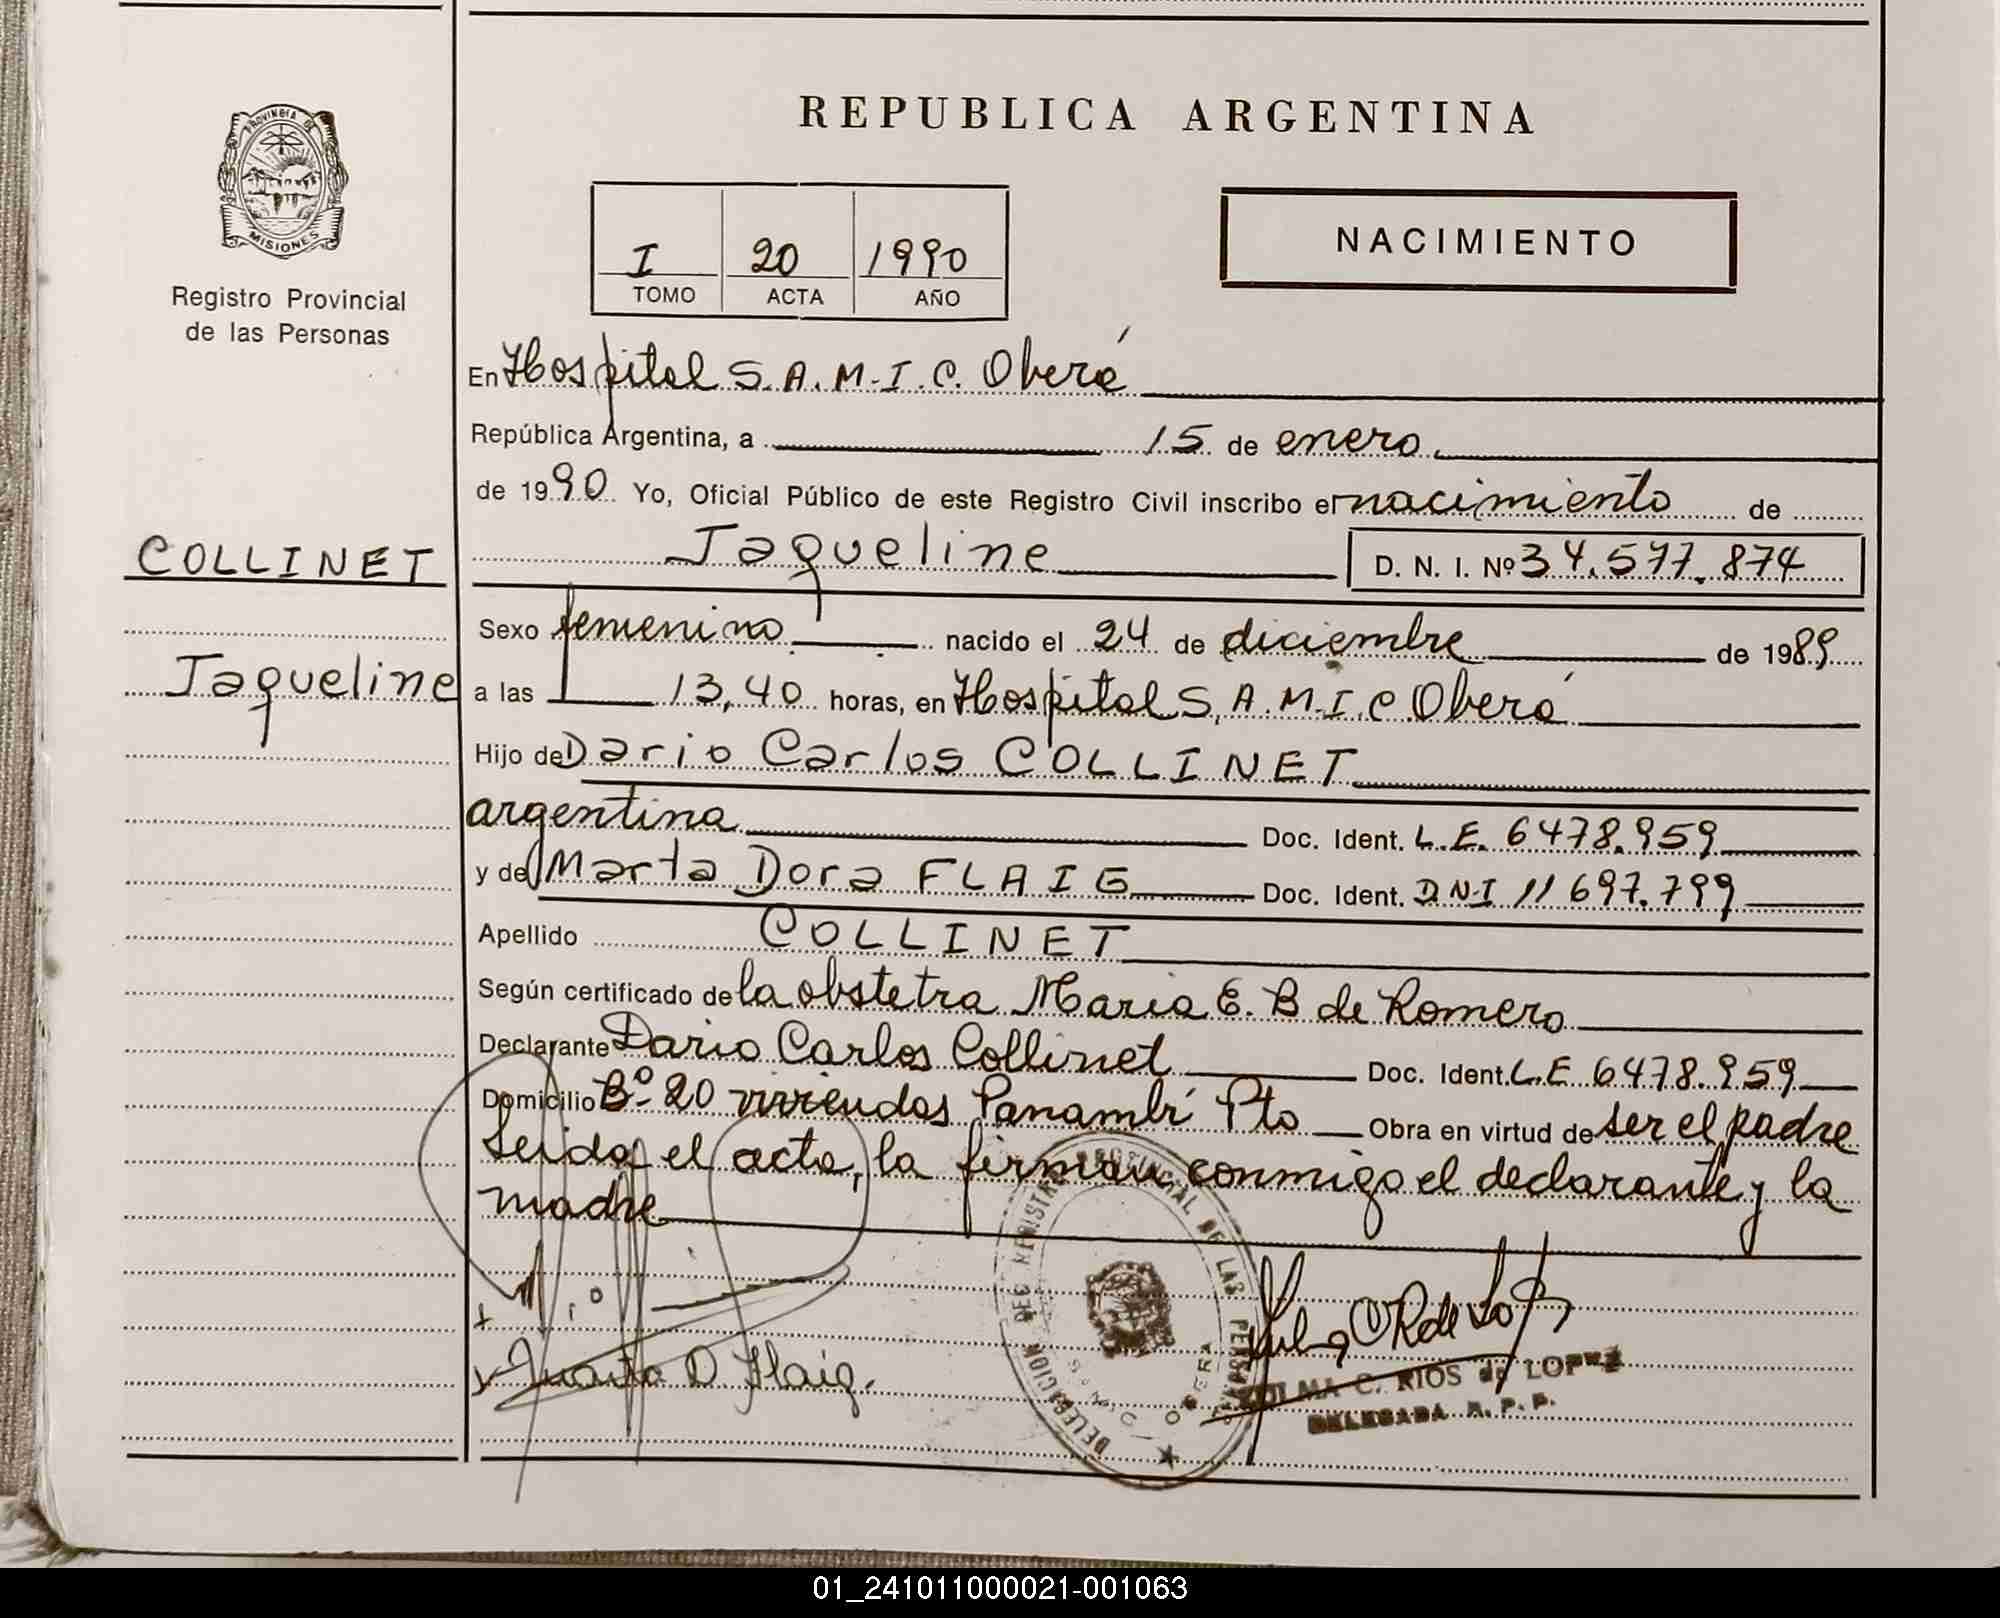 REPUBLICA ARGENTINA
PROVINCIA DE
MISIONES
Registro Provincial
de las Personas
I 20 1990
TOMO ACTA AÑO
NACIMIENTO
En Hospital S.A.M.I.C. Oberá
República Argentina, a 15 de enero
de 1990 Yo, Oficial Público de este Registro Civil inscribo el nacimiento de
COLLINET
Jaqueline D. N. I. Nº 34.577.874
Sexo femenino nacido el 24 de diciembre de 1989
Jaqueline
a las 13,40 horas, en Hospital S.A.M.I.C. Oberá
Hijo de Dario Carlos COLLINET
argentina Doc. Ident. L.E. 6478.959
y de Marta Dora FLAIG Doc. Ident. D.N.I 11697.799
Apellido COLLINET
Según certificado de la obstetra Maria E. B de Romero
Declarante Dario Carlos Collinet Doc. Ident. L.E 6478.959
Domicilio Bº 20 viviendas Panambí Pto Obra en virtud de ser el padre
Leida el acta, la firman conmigo el declarante y la
madre
DELEGACION DEL REGISTRO PROVINCIAL DE LAS PERSONAS
OBERA
D. Flaig.
ZULMA C. RIOS de LOPEZ
DELEGADA R. P. P.
01_241011000021-001063